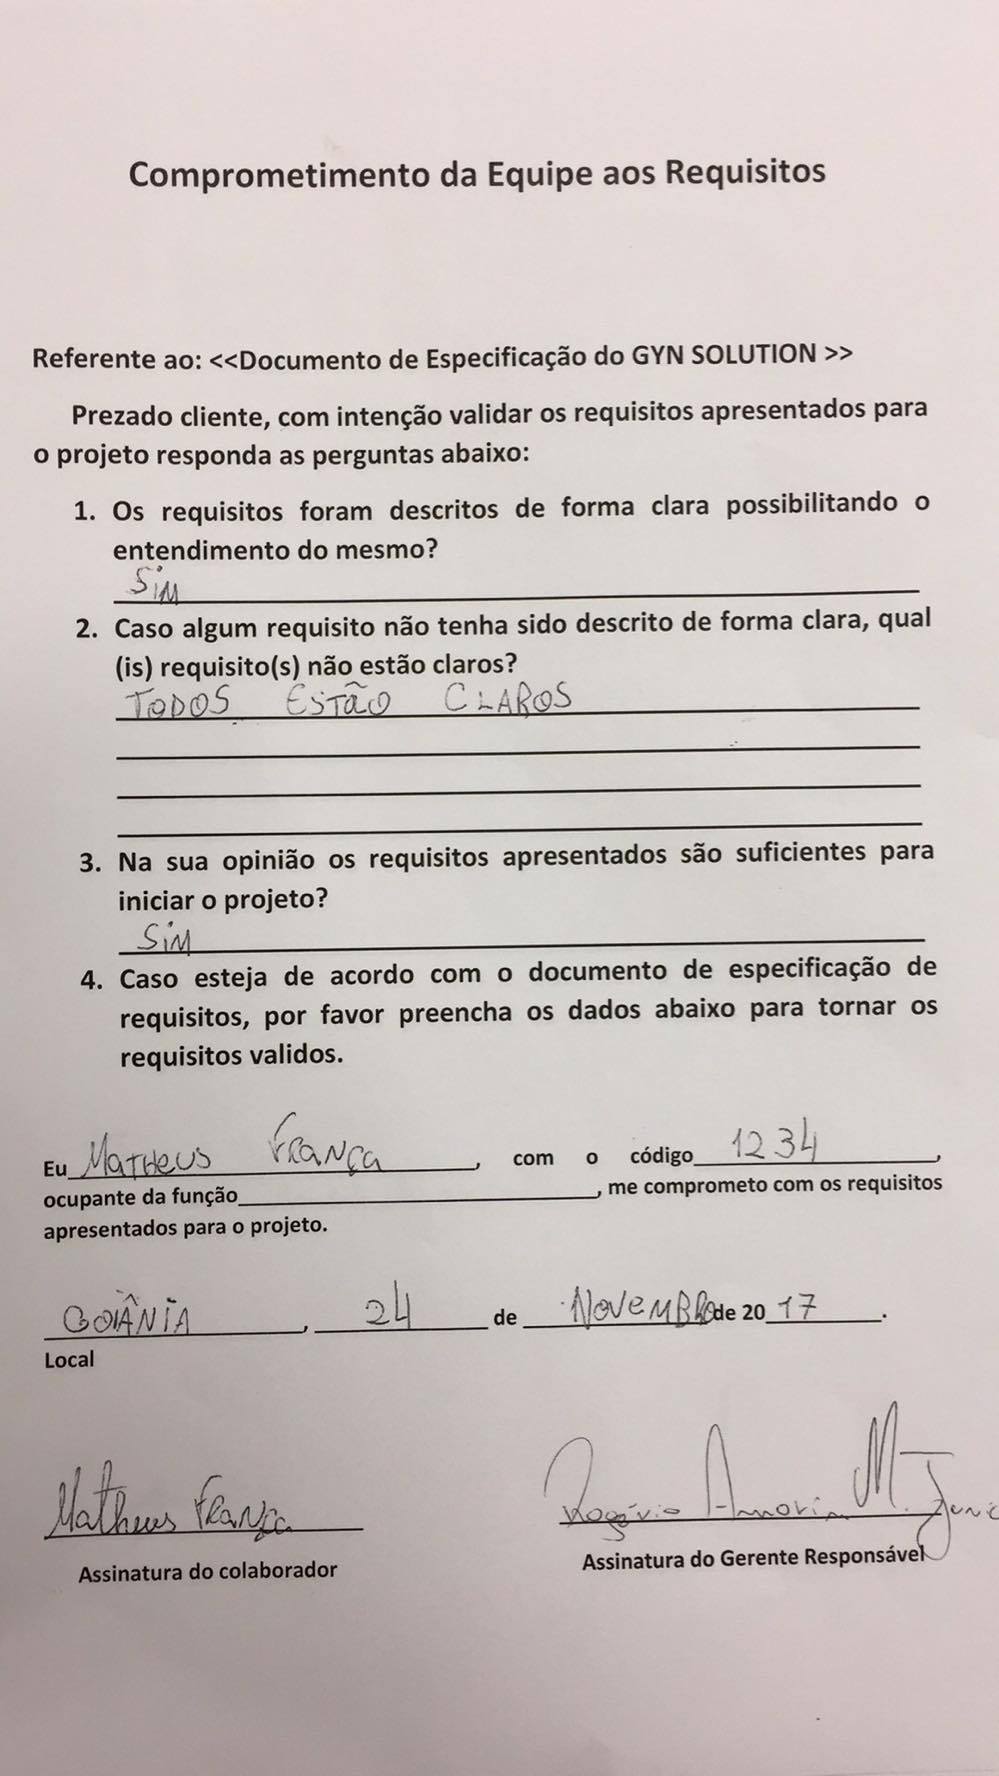 Comprometimento da Equipe aos Requisitos
Referente ao: <<Documento de Especificação do GYN SOLUTION >>
Prezado cliente, com intenção validar os requisitos apresentados para
o projeto responda as perguntas abaixo:
1. Os requisitos foram descritos de forma clara possibilitando o
entendimento do mesmo?
SIM
2. Caso algum requisito não tenha sido descrito de forma clara, qual
(is) requisito(s) não estão claros?
TODOS ESTÃO CLAROS
3. Na sua opinião os requisitos apresentados são suficientes para
iniciar o projeto?
SIM
4. Caso esteja de acordo com o documento de especificação de
requisitos, por favor preencha os dados abaixo para tornar os
requisitos validos.
Eu MATHEUS FRANÇA, com o código 1234,
ocupante da função , me comprometo com os requisitos
apresentados para o projeto.
GOIÂNIA, 24 de NOVEMBRO de 20 17.
Local
Matheus França Rogério Amorim M.
Assinatura do colaborador Assinatura do Gerente Responsável